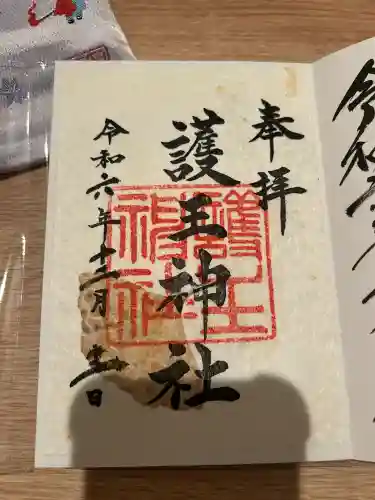 奉拝
護王神社
護王
神社
令和六年十二月
日
令和